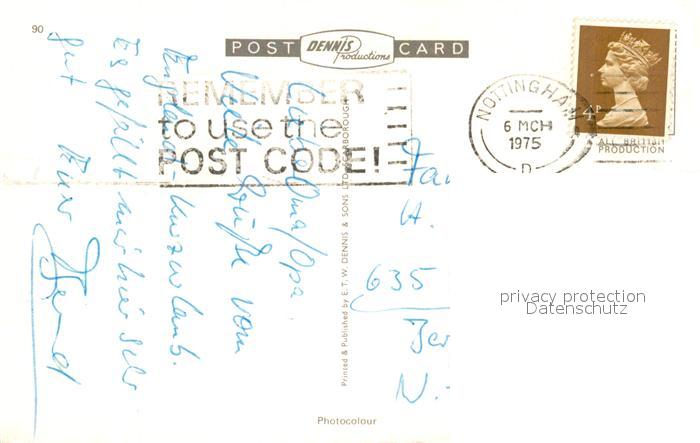 90
POST DENNIS Productions CARD
REMEMBER
to use the
POST CODE!
NOTTINGHAM
6 MCH
1975
D
4P
ALL BRITISH
PRODUCTION
Liebe Oma/Opa
Viele Grüße vom
England-Kurzurlaub.
Es gefällt mir hier sehr
gut
Euer
Printed & Published by E. T. W. DENNIS & SONS LTD. SCARBOROUGH
Fa
H.
635
N.
privacy protection
Datenschutz
Photocolour